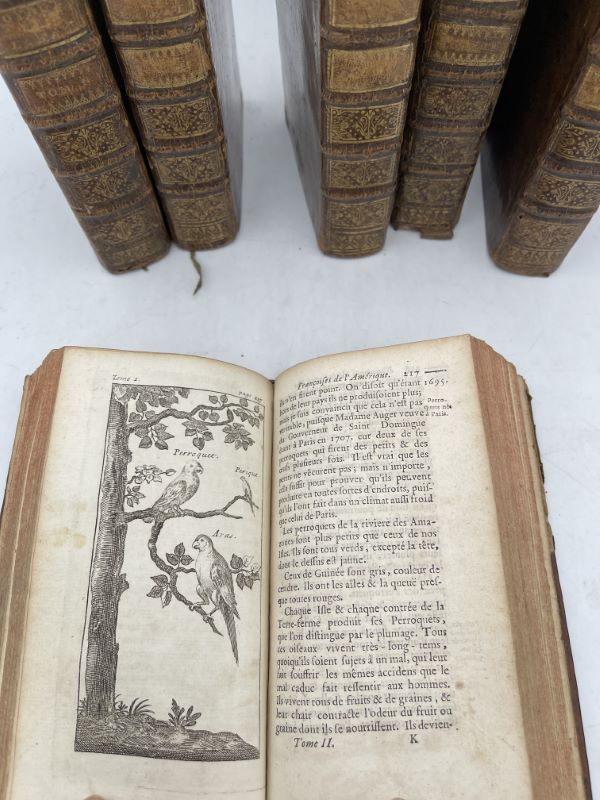 Tome 2.
Perroquet.
Aras.
Françoises de l'Amérique. 217
n'en firent point. On disoit qu'étant 1695.
hors de leur pays ils ne produisoient plus; Perro-
mais je suis convaincu que cela n'est pas quets nés
veritable, puisque Madame Auger veuve à Paris.
du Gouverneur de Saint Domingue
étant à Paris en 1707, eut deux de ses
perroquets qui firent des petits & des
œufs plusieurs fois. Il est vrai que les
petits ne vêcurent pas; mais n'importe,
cela suffit pour prouver qu'ils peuvent
produire en toutes sortes d'endroits, puis-
qu'ils l'ont fait dans un climat aussi froid
que celui de Paris.
Les perroquets de la riviere des Ama-
zones sont plus petits que ceux de nos
Isles. Ils sont tous verds, excepté la tête,
dont le dessus est jaune.
Ceux de Guinée sont gris, couleur de
cendre. Ils ont les aîles & la queuë pres-
que toutes rouges.
Chaque Isle & chaque contrée de la
Terre-ferme produit ses Perroquets,
que l'on distingue par le plumage. Tous
ces oiseaux vivent très-long-tems,
quoiqu'ils soient sujets à un mal, qui leur
fait souffrir les mêmes accidens que le
mal caduc fait ressentir aux hommes.
Ils vivent tous de fruits & de graines, &
leur chair contracte l'odeur du fruit ou
graine dont ils se nourrissent. Ils devien-
Tome II. K